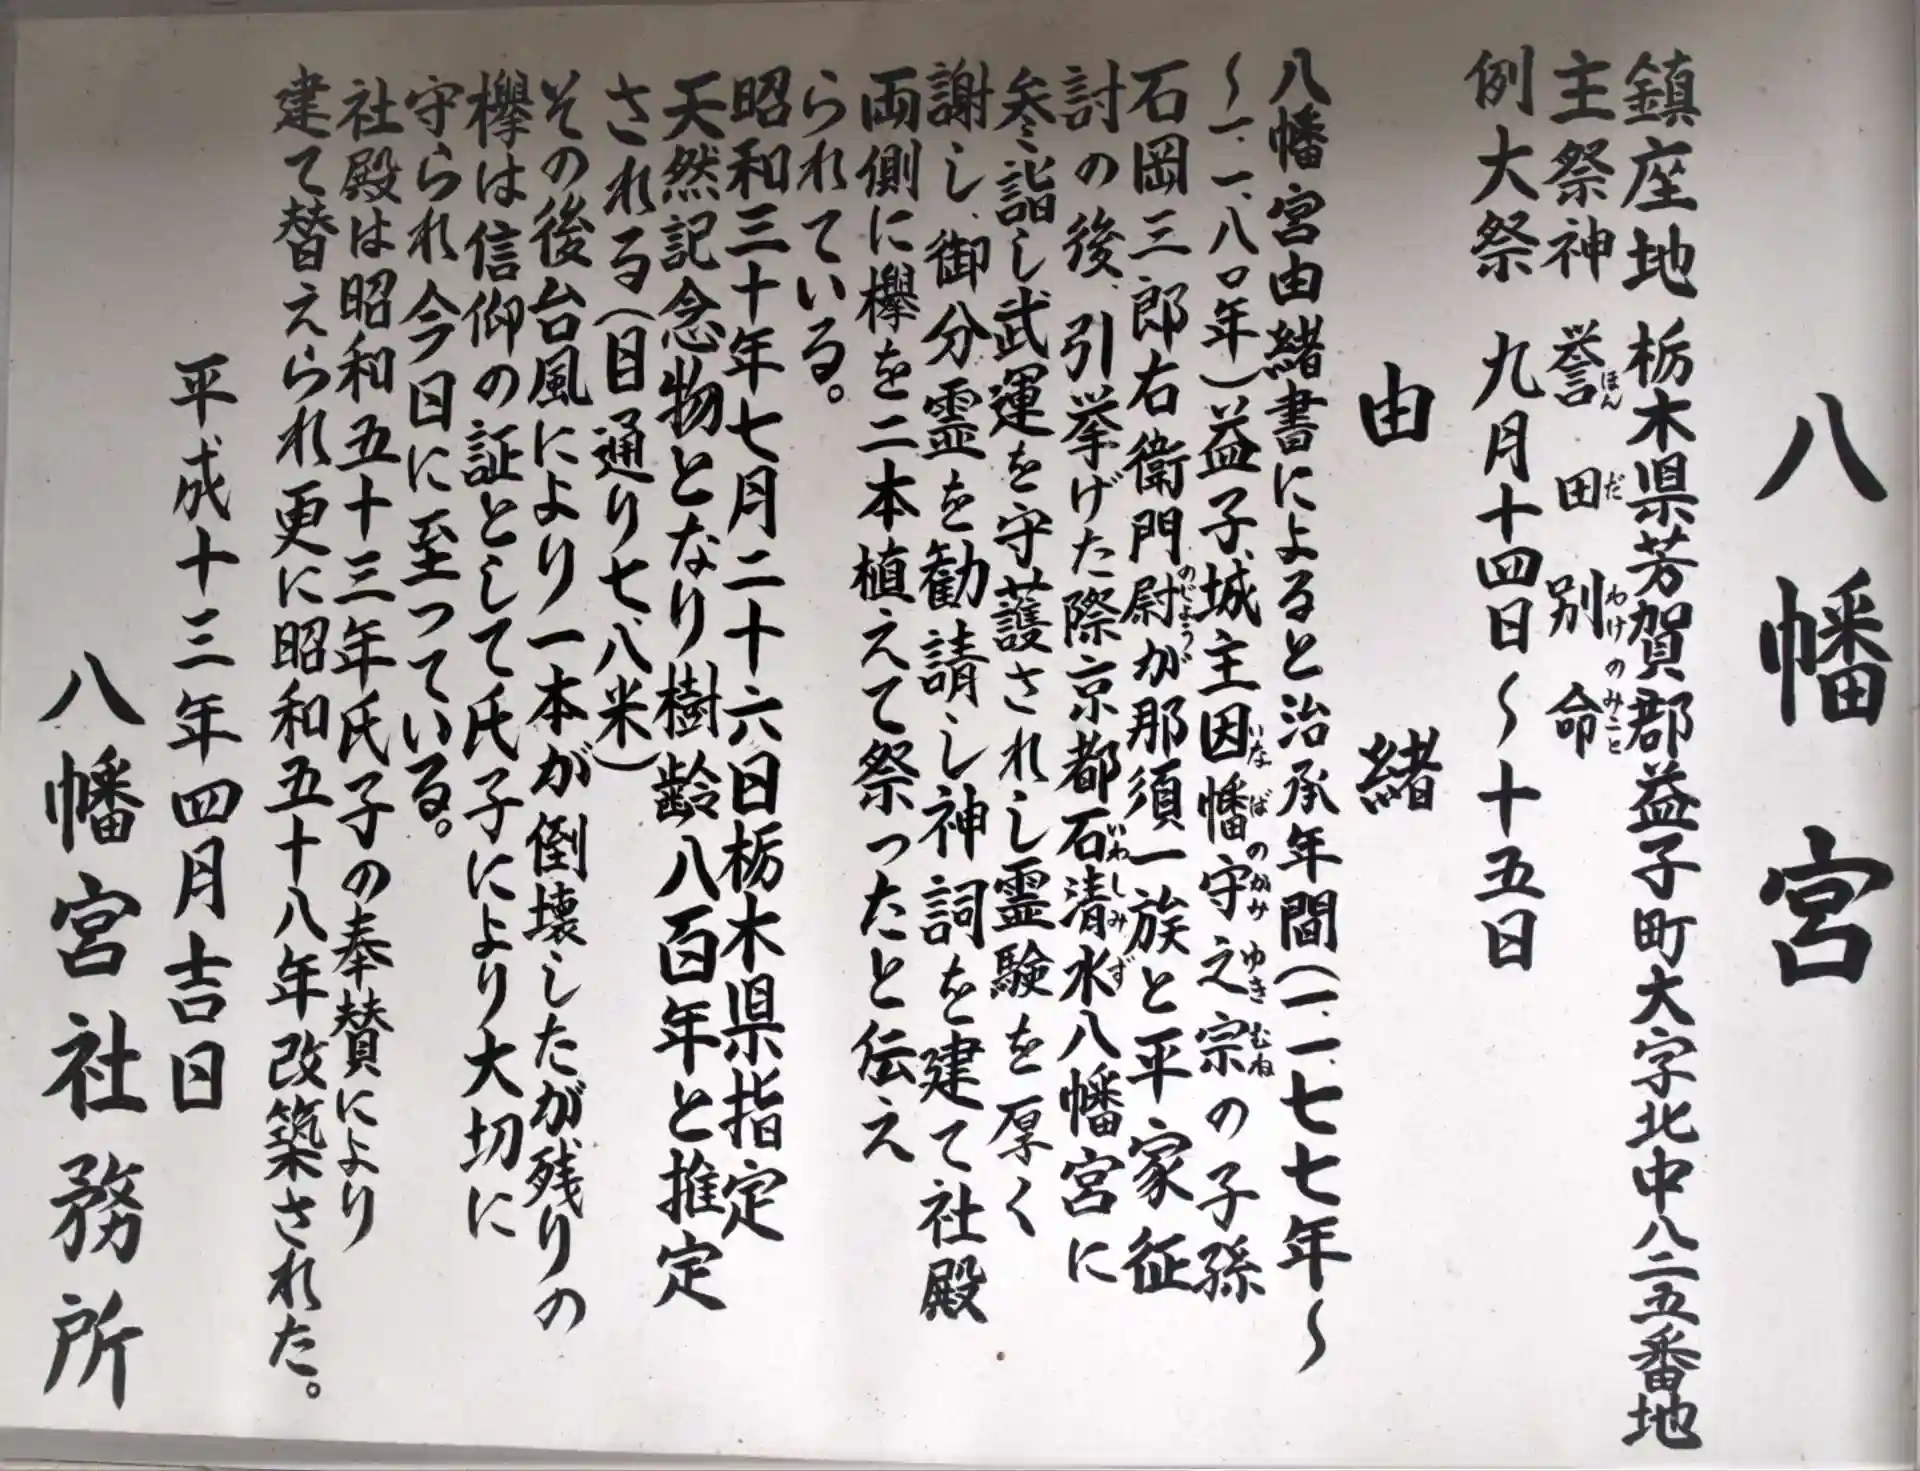 八幡宮
鎮座地 栃木県芳賀郡益子町大字北中八二五番地
主祭神 誉田別命
ほんだわけのみこと
例大祭 九月十四日～十五日
由緒
八幡宮由緒書によると治承年間(一、一、七七年～
～一、一、八〇年)益子城主因幡守之宗の子孫
いなばのかみゆきむね
石岡三郎右衛門尉が那須一族と平家征
のじょう
討の後、引挙げた際京都石清水八幡宮に
いわしみず
参詣し武運を守護されし霊験を厚く
謝し、御分霊を勧請し神詞を建て社殿
両側に欅を二本植えて祭ったと伝え
られている。
昭和三十年七月二十六日栃木県指定
天然記念物となり樹齢八百年と推定
される(目通り七、八米)
その後台風により一本が倒壊したが残りの
欅は信仰の証として氏子により大切に
守られ今日に至っている。
社殿は昭和五十三年氏子の奉賛により
建て替えられ更に昭和五十八年改築された。
平成十三年四月吉日
八幡宮社務所